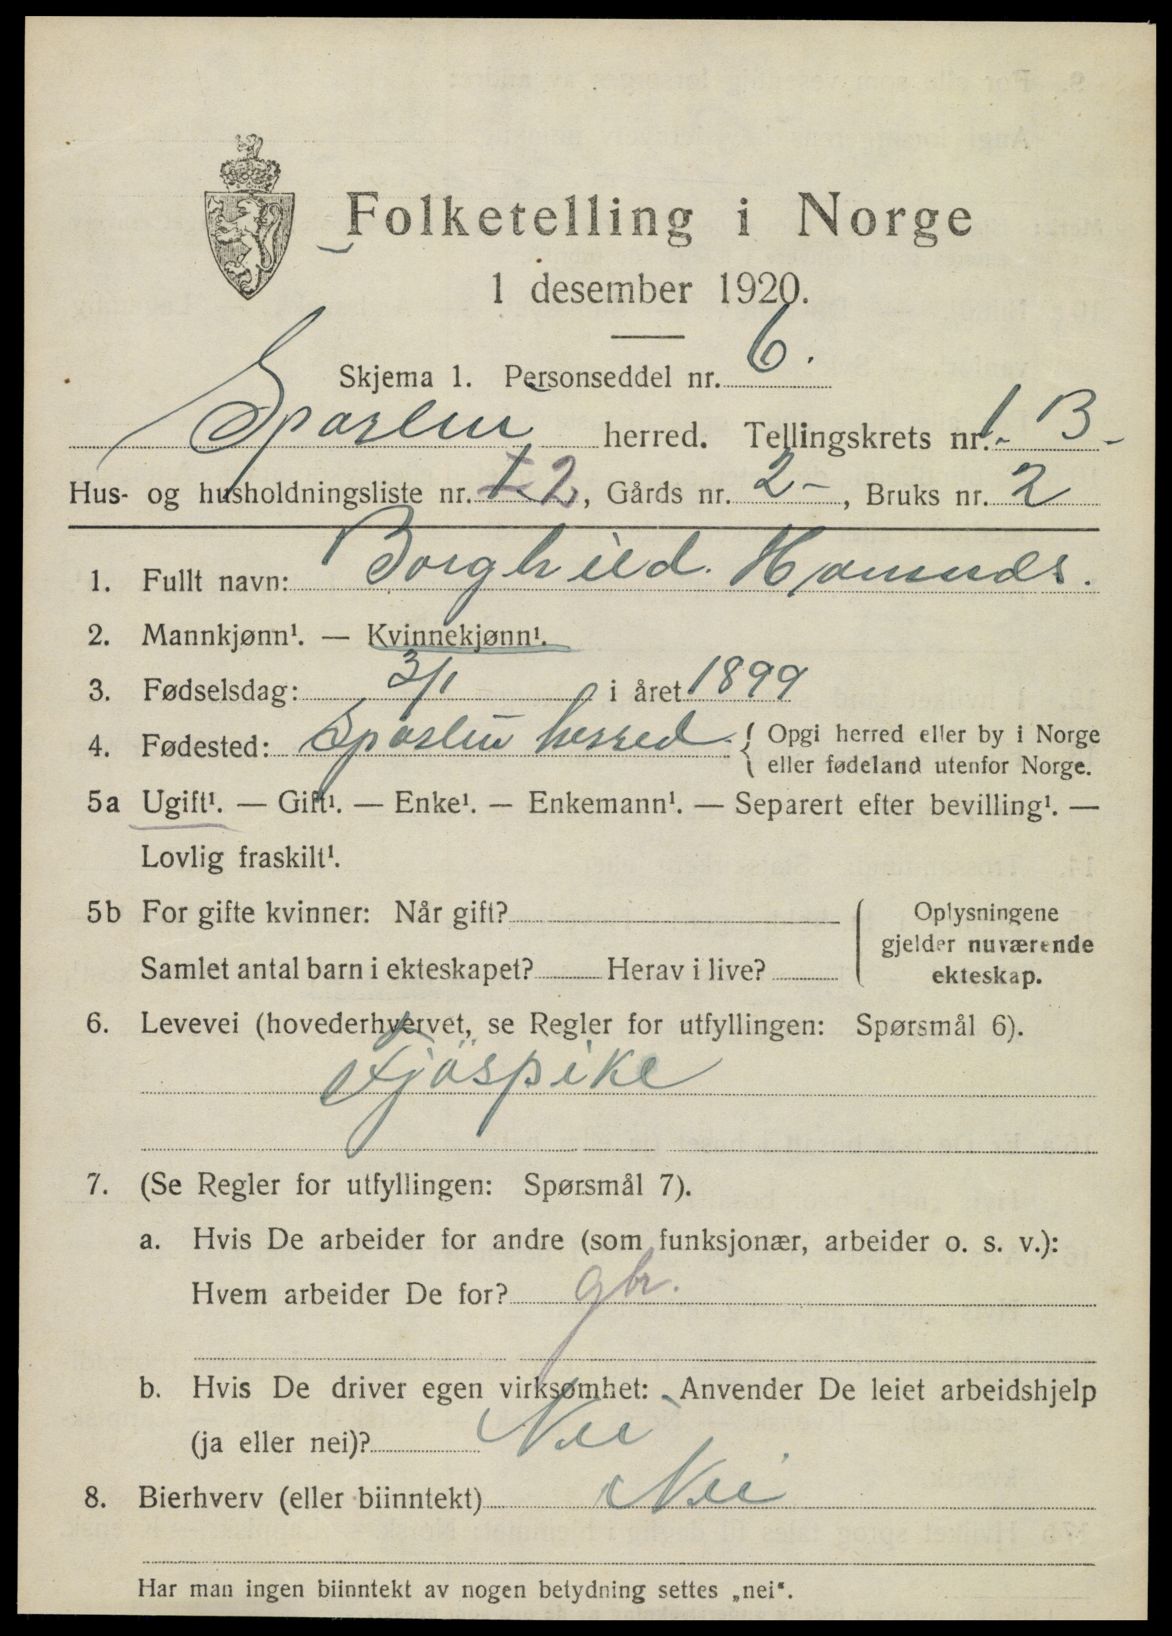 Folketelling i Norge
1 desember 1920.
Skjema 1. Personseddel nr. 6.
herred. Tellingskrets nr. 1 B -
Hus- og husholdningsliste nr. 2, Gårds nr. 2 -, Bruks nr. 2
1. Fullt navn: Borghild
2. Mannkjønn¹. — Kvinnekjønn¹.
3. Fødselsdag: 3/1 i året 1899
4. Fødested: herred { Opgi herred eller by i Norge
eller fødeland utenfor Norge.
5a Ugift¹. — Gift¹. — Enke¹. — Enkemann¹. — Separert efter bevilling¹. —
Lovlig fraskilt¹.
5b For gifte kvinner: Når gift?
Samlet antal barn i ekteskapet? Herav i live?
Oplysningene
gjelder nuværende
ekteskap.
6. Levevei (hovederhvervet, se Regler for utfyllingen: Spørsmål 6).
Fjöspike
7. (Se Regler for utfyllingen: Spørsmål 7).
a. Hvis De arbeider for andre (som funksjonær, arbeider o. s. v.):
Hvem arbeider De for? gbr.
b. Hvis De driver egen virksomhet: Anvender De leiet arbeidshjelp
(ja eller nei)? Nei
8. Bierhverv (eller biinntekt) Nei
Har man ingen biinntekt av nogen betydning settes „nei“.